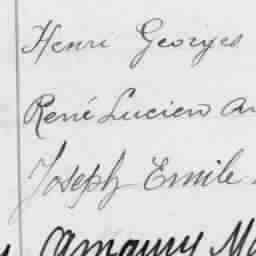 Henri Georges
René Lucien
Joseph Emile
Amaury